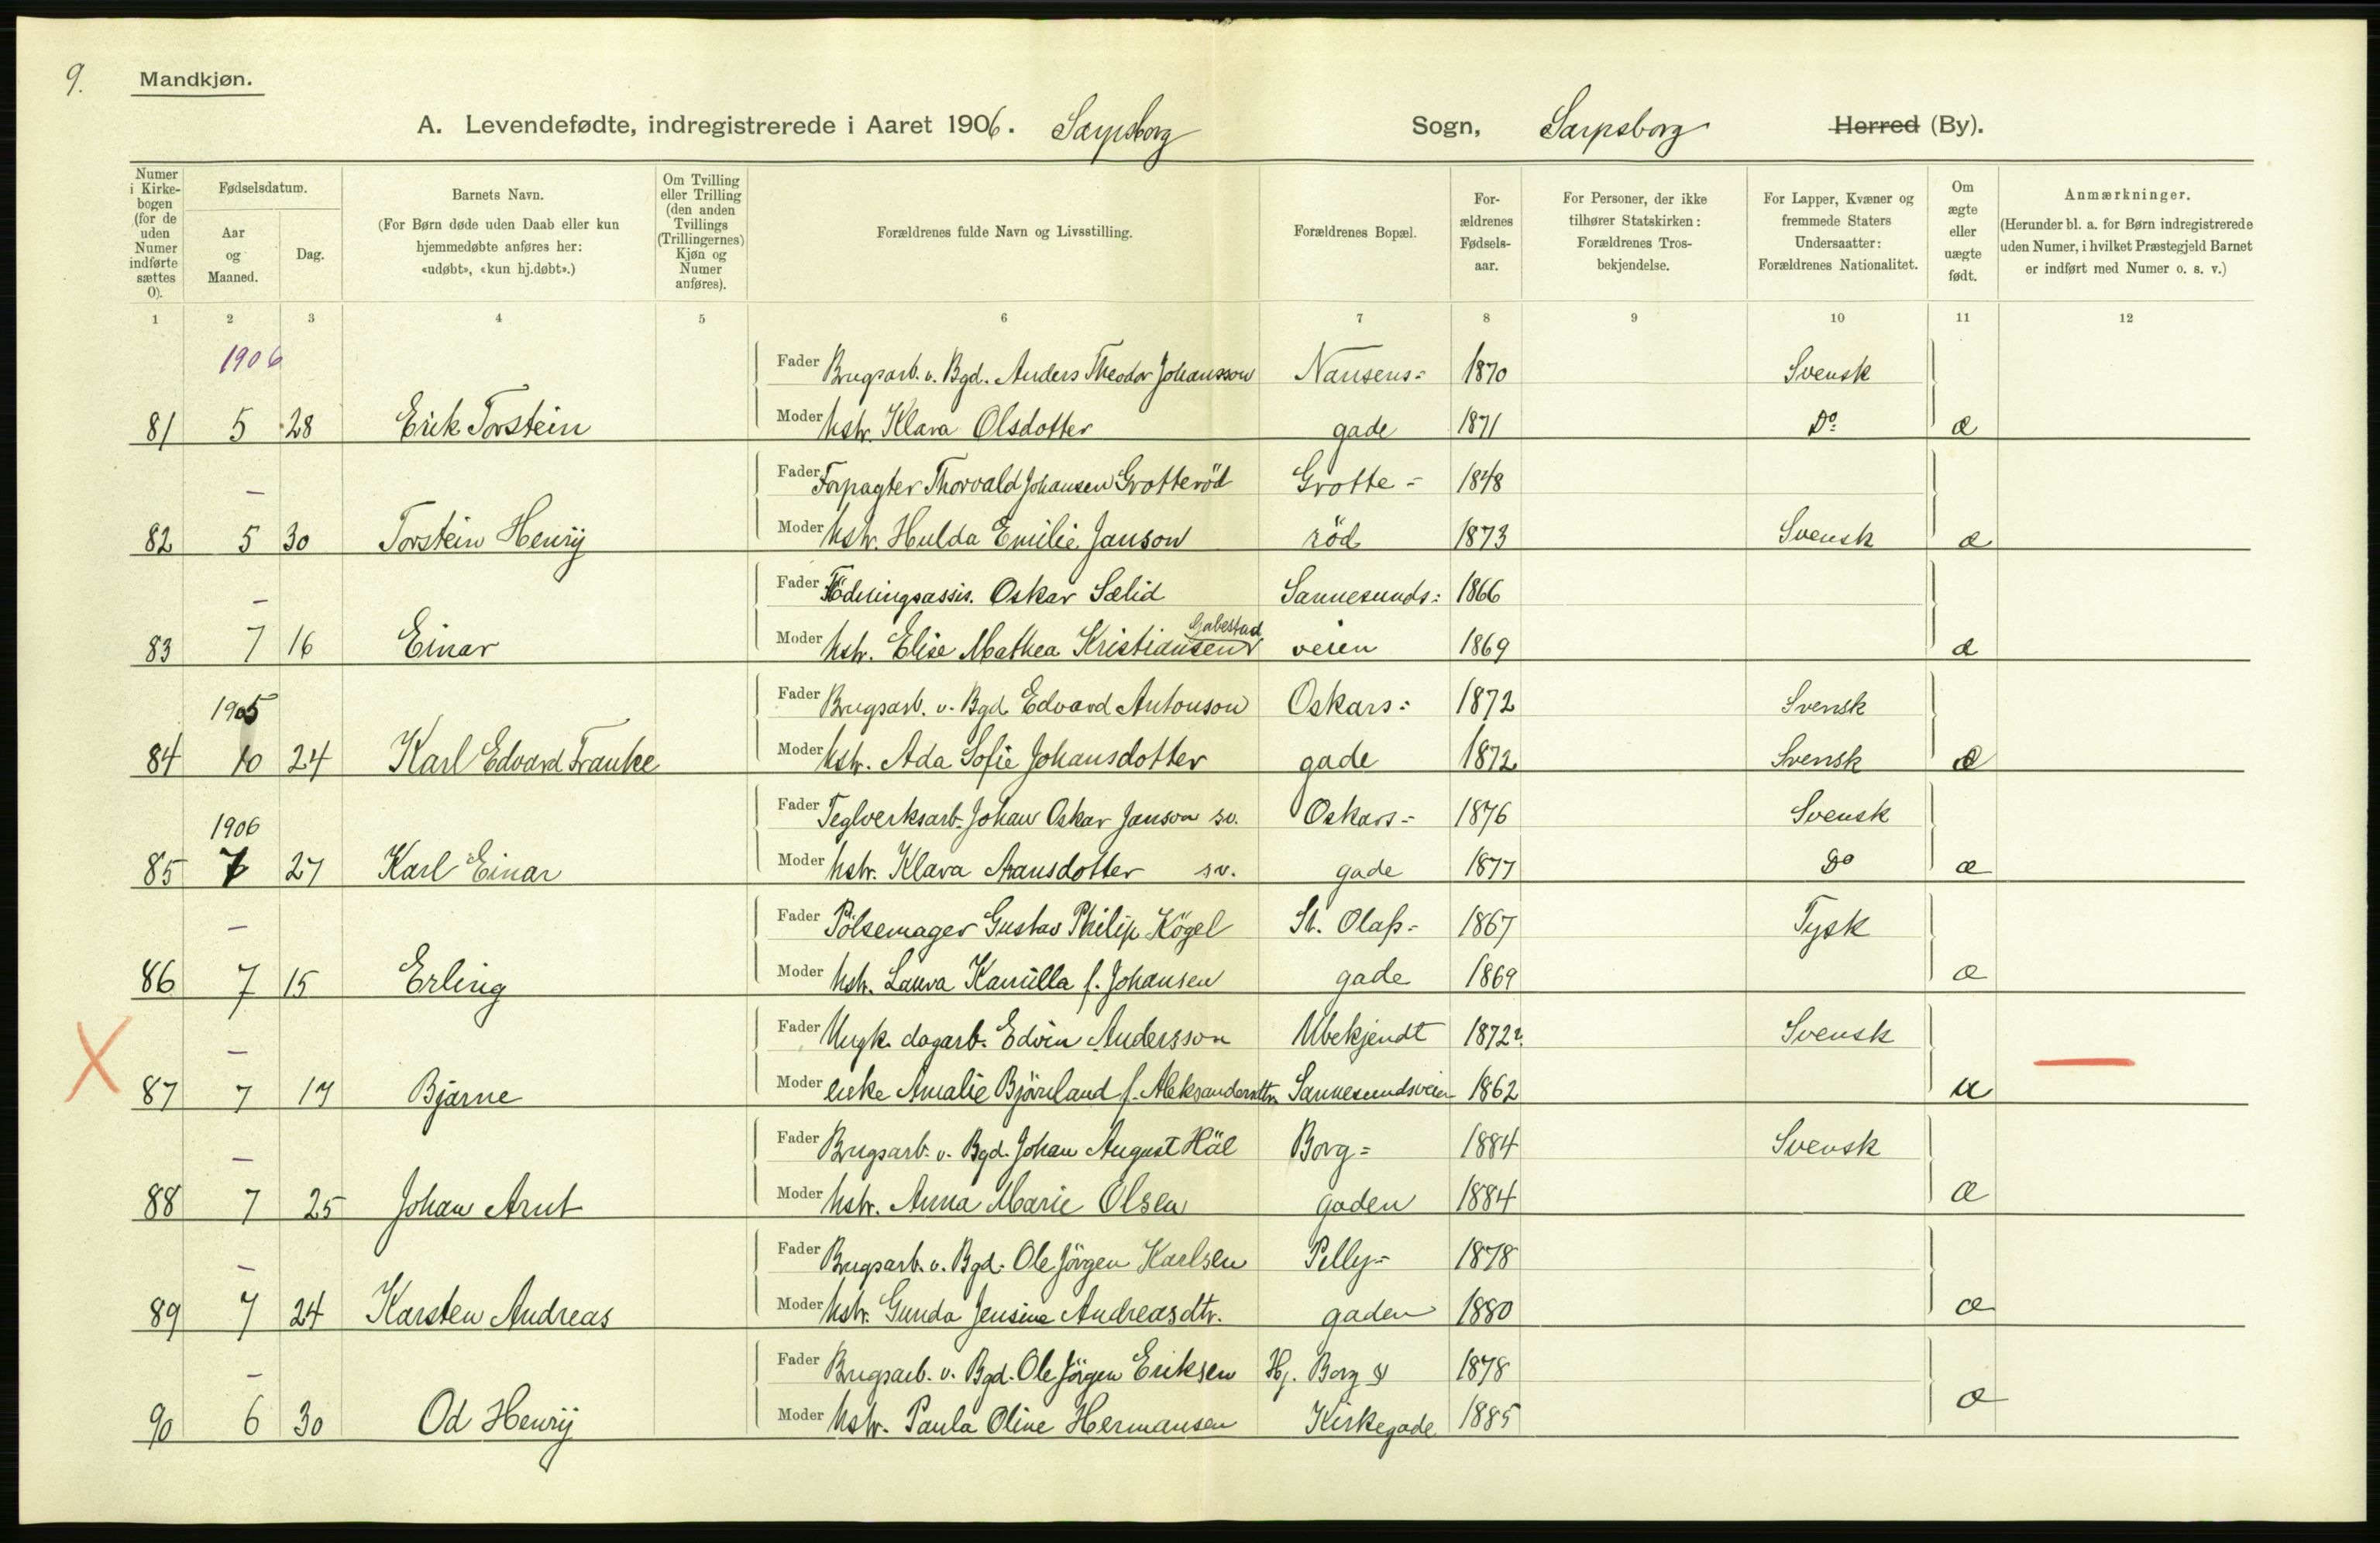 9.
Mandkjøn.
A. Levendefødte, indregistrerede i Aaret 1906. Sarpsborg Sogn, Sarpsborg Herred (By).
Numer i Kirkebogen (for de uden Numer indførte sættes 0).
Fødselsdatum.
Aar og Maaned.
Dag.
Barnets Navn.
(For Børn døde uden Daab eller kun hjemmedøbte anføres her: «udøbt», «kun hj.døbt».)
Om Tvilling eller Trilling (den anden Tvillings (Trillingernes) Kjøn og Numer anføres).
Forældrenes fulde Navn og Livsstilling.
Forældrenes Bopæl.
Forældrenes Fødselsaar.
For Personer, der ikke tilhører Statskirken: Forældrenes Trosbekjendelse.
For Lapper, Kvæner og fremmede Staters Undersaatter: Forældrenes Nationalitet.
Om ægte eller uægte født.
Anmærkninger.
(Herunder bl. a. for Børn indregistrerede uden Numer, i hvilket Præstegjeld Barnet er indført med Numer o. s. v.)
1 2 3 4 5 6 7 8 9 10 11 12
1906 Fader Brugsarb. v. Bgd. Anders Theodor Johansson Nansens- 1870 Svensk
81 5 28 Erik Torstein Moder Hstr. Klara Olsdotter gade 1871 Do æ
— Fader Forpagter Thorvald Johansen Grotteröd Grotte- 1848
82 5 30 Torstein Henrij Moder Hstr. Hulda Emilie Janson röd 1873 Svensk æ
— Fader Födningsassis. Oskar Sælid Sannesunds- 1866
Gabestad
83 7 16 Einar Moder Hstr. Elise Mathea Kristiansen veien 1869 æ
1905 Fader Brugsarb. v. Bgd. Edvard Antonson Oskars- 1872 Svensk
84 10 24 Karl Edvard Franke Moder Hstr. Ada Sofie Johansdotter gade 1872 Svensk æ
1906 Fader Teglverksarb. Johan Oskar Janson sv. Oskars- 1876 Svensk
85 7 27 Karl Einar Moder Hstr. Klara Aransdotter sv. gade 1877 Do æ
— Fader Pölsemager Gustav Philip Kögel St. Olafs- 1867 Tysk
86 7 15 Erling Moder Hstr. Laura Kamilla f. Johansen gade 1869 æ
X — Fader Ungk. dagarb. Edvin Andersson Ubekjendt 1872? Svensk
87 7 17 Bjarne Moder enke Amalie Björnland f. Aleksandersdtr. Sannesundsveien 1862 u —
— Fader Brugsarb. v. Bgd. Johan August Häl Borg- 1884 Svensk
88 7 25 Johan Arnt Moder Hstr. Anna Marie Olsen gaden 1884 æ
— Fader Brugsarb. v. Bgd. Ole Jörgen Karlsen Pelly- 1878
89 7 24 Karsten Andreas Moder Hstr. Gunda Jensine Andreasdtr. gaden 1880 æ
— Fader Brugsarb. v. Bgd. Ole Jörgen Eriksen Hj. Borg & 1878
90 6 30 Od Henrij Moder Hstr. Paula Oline Hermansen Kirkegade 1885 æ